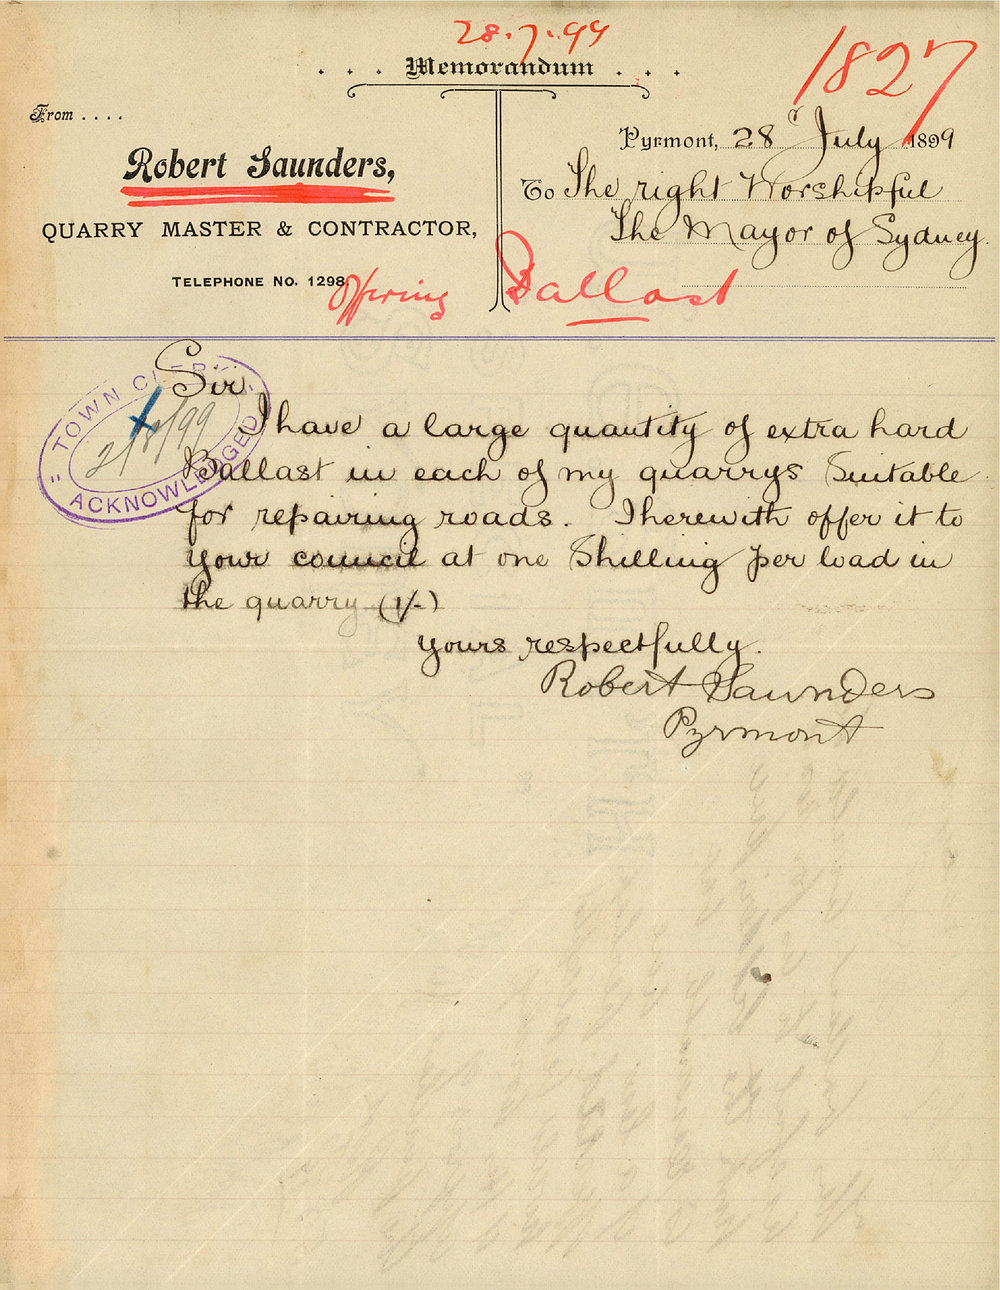 28.7.99
. . . Memorandum . . .
1827
From . . . .
Robert Saunders,
QUARRY MASTER & CONTRACTOR,
TELEPHONE No. 1298
Pyrmont, 28 July 1899
To The right Worshipful
The Mayor of Sydney.
Offering Ballast
TOWN CLERK
2/8/99
ACKNOWLEDGED
Sir.
I have a large quantity of extra hard
Ballast in each of my quarrys Suitable
for repairing roads. I herewith offer it to
your council at one Shilling per load in
the quarry (1/-)
yours respectfully.
Robert Saunders
Pyrmont